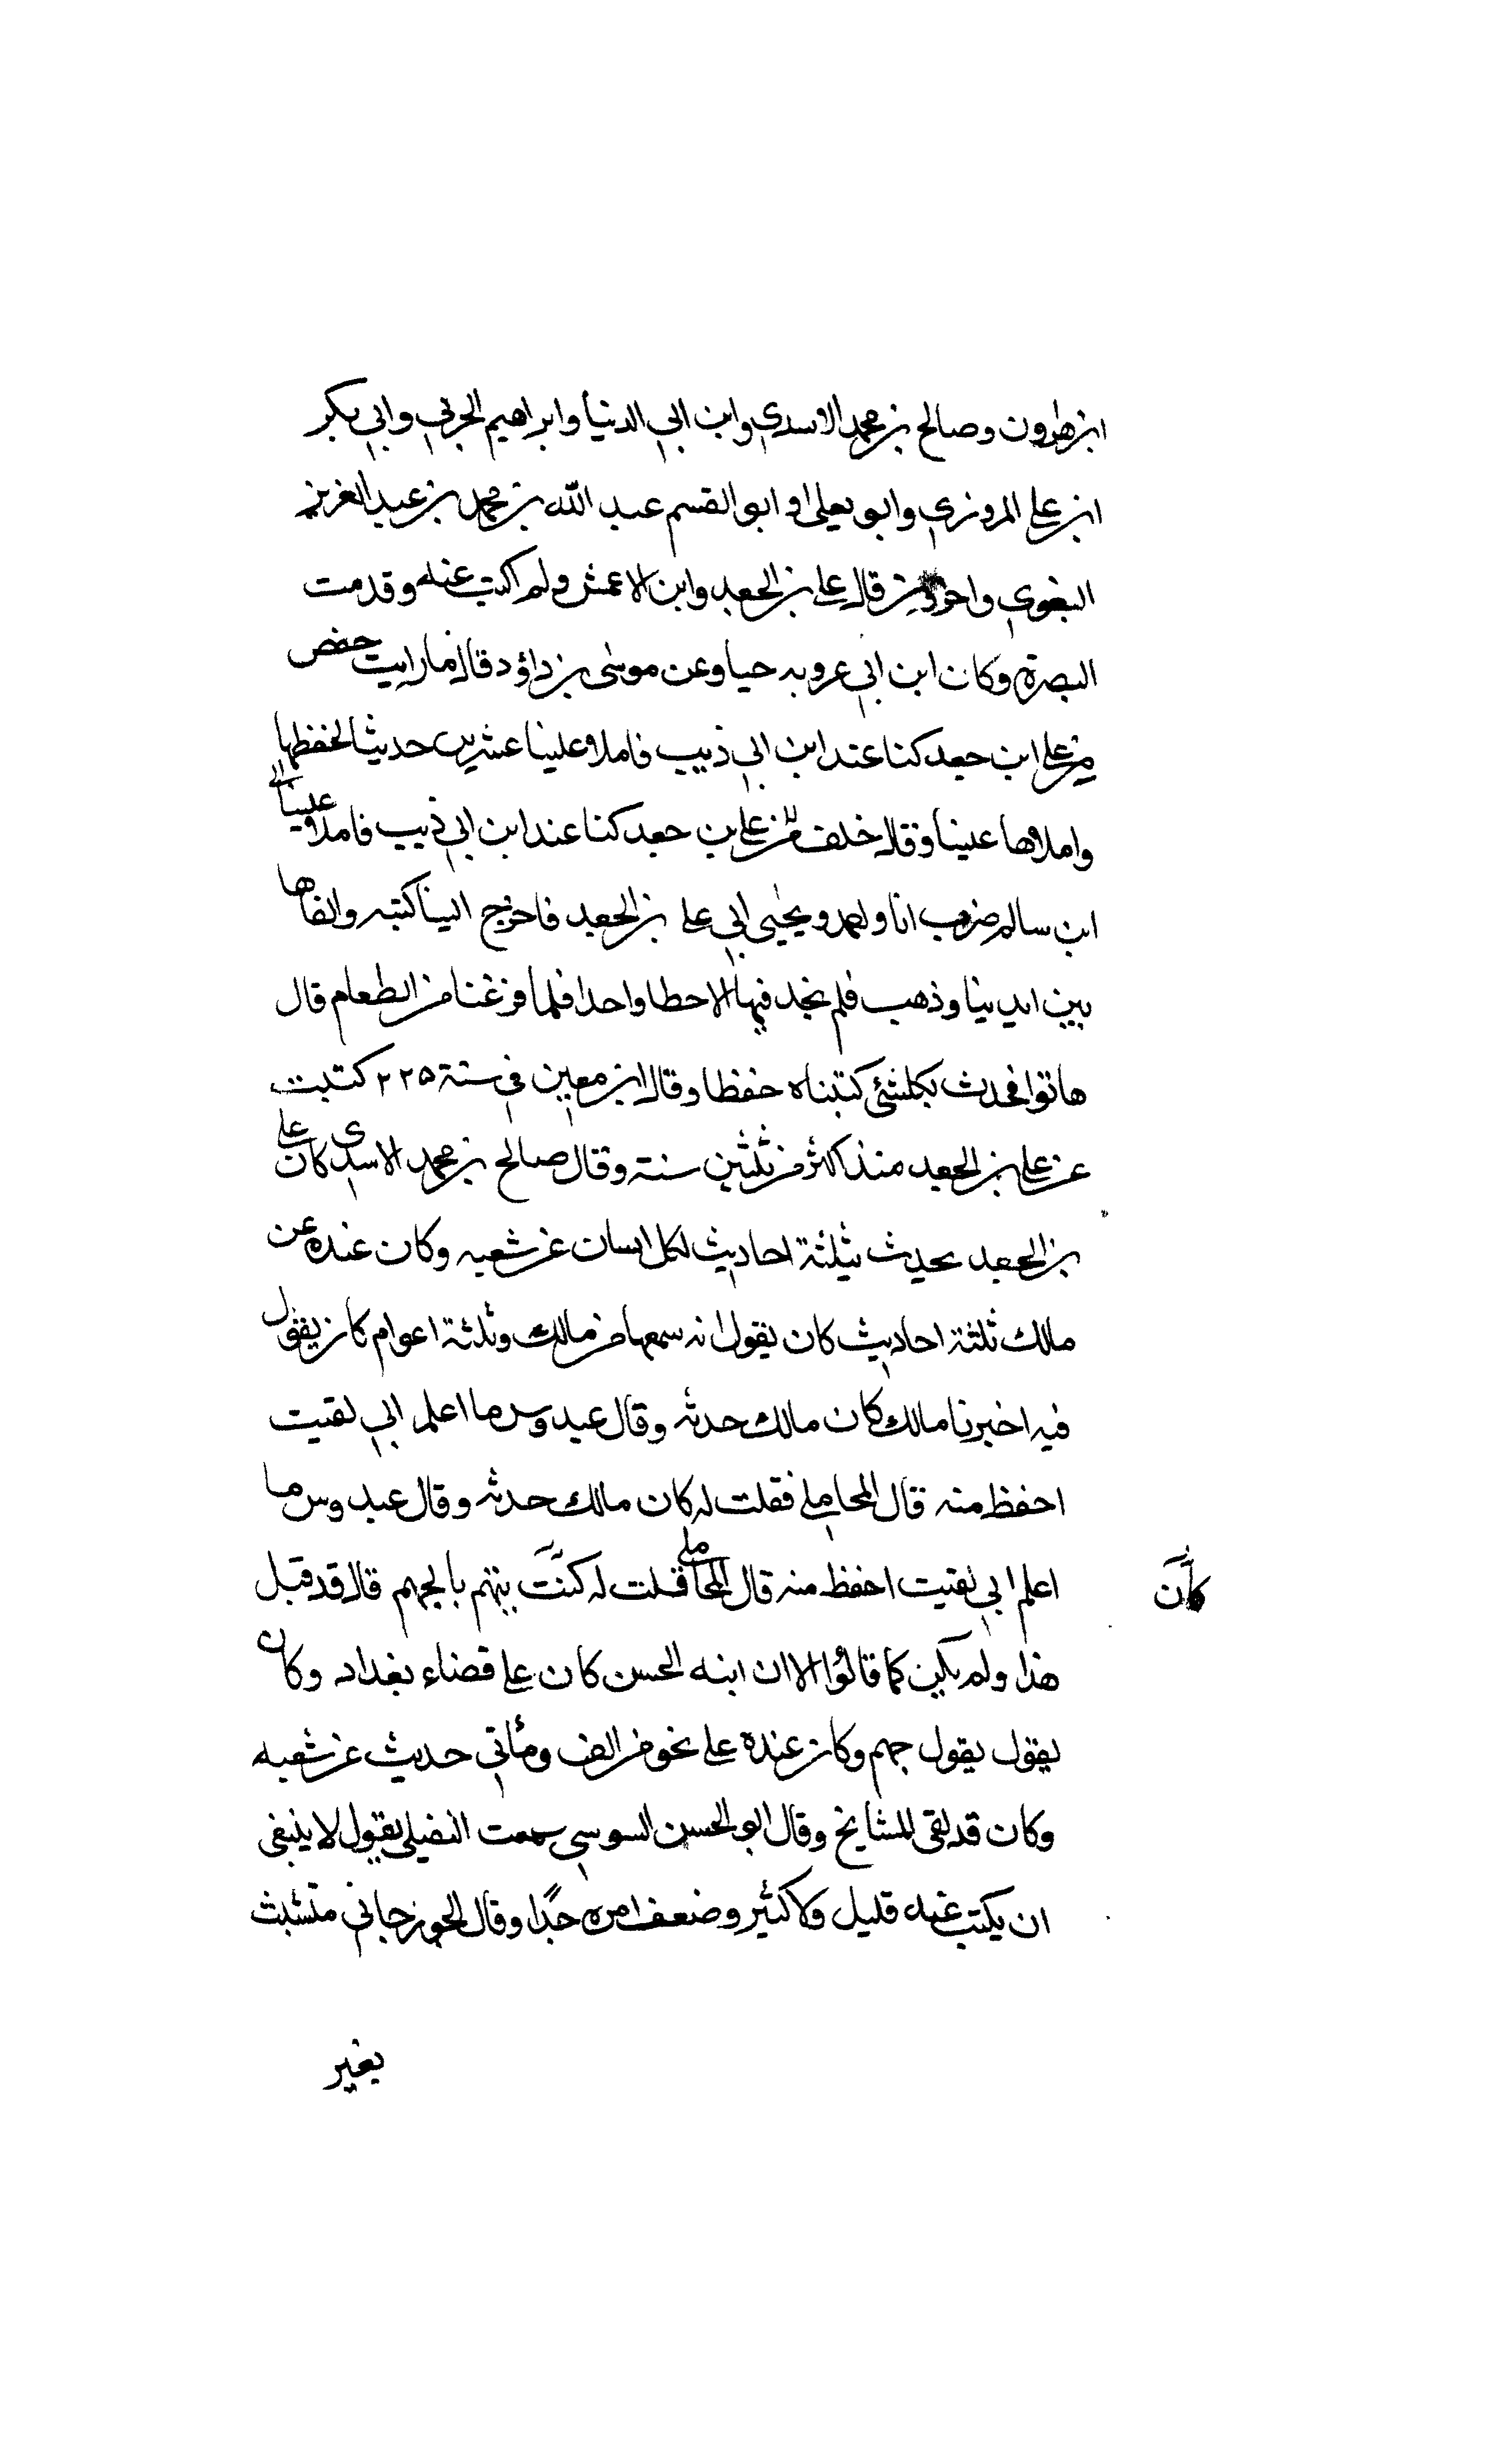 ابن هارون وصالح بن محمد الاسدي وابن ابي الدنيا وابراهيم الحربي وابي بكر
ابن علي المروزي وابو يعلى و ابو القسم عبد الله بن محمد بن عبد العزيز
البغوي واخرون قال علي بن الجعد وابن الاعمش ولم اكتب عنه وقدمت
البصرة وكان ابن ابي عروبه حيا وعن موسى بن داؤد قال ما رايت حفض
من علي ابن جعد كنا عند ابن ابي ذيب فاملا علينا عشرين حديثا لحفظها
واملاها علينا وقال خلف من علي بن جعد كنا عند ابن ابي ذيب فاملا علينا الى
ابن سالم انا واحمد ويحيى ابي علي بن الجعد فاخرج الينا كتبه والقاها
بين ايدينا وذهب فلم نجد فيها الاحطا واحدا فلما فرغنا من الطعام قال
هاتوا فحدث بكلشئ كتبناه حفظا وقال ابن معين في سنة ٢٢٥ كتبت
عن علي بن الجعد منذ اكثر من ثلثين سنة وقال صالح بن محمد الاسدى كان علي
بن الجعد يحدث بثلثة احاديث لكل انسان عن شعبه وكان عنده عن
مالك ثلثة احاديث كان يقول انه سمعها من مالك وثلثة اعوام كان يقول
فيه اخبرنا مالك كان مالك حدثه وقال عبدوس ما اعلم ابي لقيت
احفظ منه قال المحاملي فقلت له كان مالك حدثه وقال عبدوس ما
اعلم ابي لقيت احفظ منه قال المحاملي فقلت له كنت يتهم بالجهم قال قد قيل
كان
هذا ولم يكن كما قالوا الا ان ابنه الحسن كان علي قضاء بغداد وكان
يقول يقول جهم وكان عنده علي نحو من الف ومأتي حديث عن شعبه
وكان قد لقي المشايخ وقال ابو الحسن السوسي سمعت النفيلي يقول لا ينبغي
ان يكتب عنه قليل ولا كثير وضعف امره جدا وقال الجوزجاني متشبث
بغير